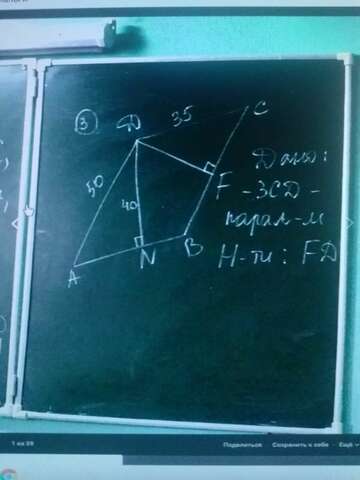 3
D
35
C
50
40
Дано:
F
- ЗСД -
парал-м
B
N
Н-ти: FD
A
1 из 59
Поделиться
Сохранить к себе
Ещё